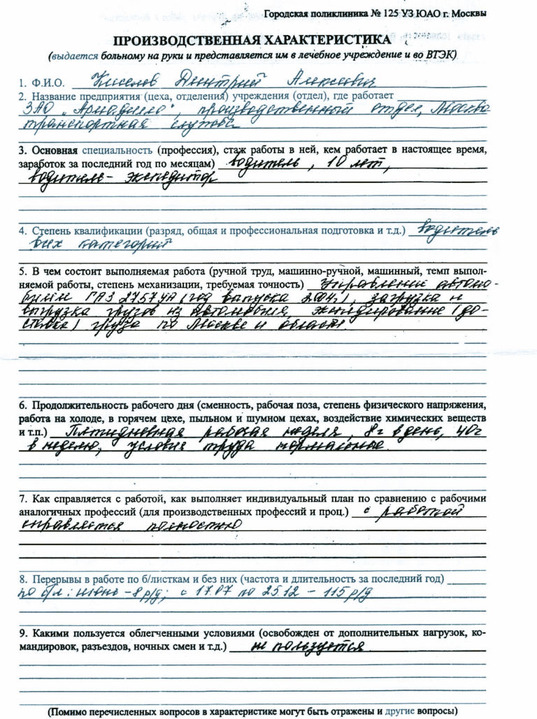 Городская поликлиника № 125 УЗ ЮАО г. Москвы
ПРОИЗВОДСТВЕННАЯ ХАРАКТЕРИСТИКА
(выдается больному на руки и представляется им в лечебное учреждение и во ВТЭК)
1. Ф.И.О. Киселев Дмитрий Алексеевич
2. Название предприятия (цеха, отделения) учреждения (отдел), где работает
ЗАО производственный отдел, Москва
транспортная служба
3. Основная специальность (профессия), стаж работы в ней, кем работает в настоящее время,
заработок за последний год по месяцам) водитель, 10 лет,
водитель-экспедитор
4. Степень квалификации (разряд, общая и профессиональная подготовка и т.д.) водитель
всех категорий
5. В чем состоит выполняемая работа (ручной труд, машинно-ручной, машинный, темп выпол-
няемой работы, степень механизации, требуемая точность) Управление автомо-
билем ГАЗ (год выпуска 2004), загрузка и
отгрузка грузов из автомобиля, экспедирование (до-
ставка) груза по Москве и области
6. Продолжительность рабочего дня (сменность, рабочая поза, степень физического напряжения,
работа на холоде, в горячем цехе, пыльном и шумном цехах, воздействие химических веществ
и т.п.) Пятидневная рабочая неделя, 8ч в день, 40ч
в неделю, условия труда нормальные
7. Как справляется с работой, как выполняет индивидуальный план по сравнению с рабочими
аналогичных профессий (для производственных профессий и проц.) с работой
справляется полностью
8. Перерывы в работе по б/листкам и без них (частота и длительность за последний год)
по б/л: июнь - 8 р/д; с 17.07 по 25.12 - 115 р/д
9. Какими пользуется облегченными условиями (освобожден от дополнительных нагрузок, ко-
мандировок, разъездов, ночных смен и т.д.) не пользуется
(Помимо перечисленных вопросов в характеристике могут быть отражены и другие вопросы)